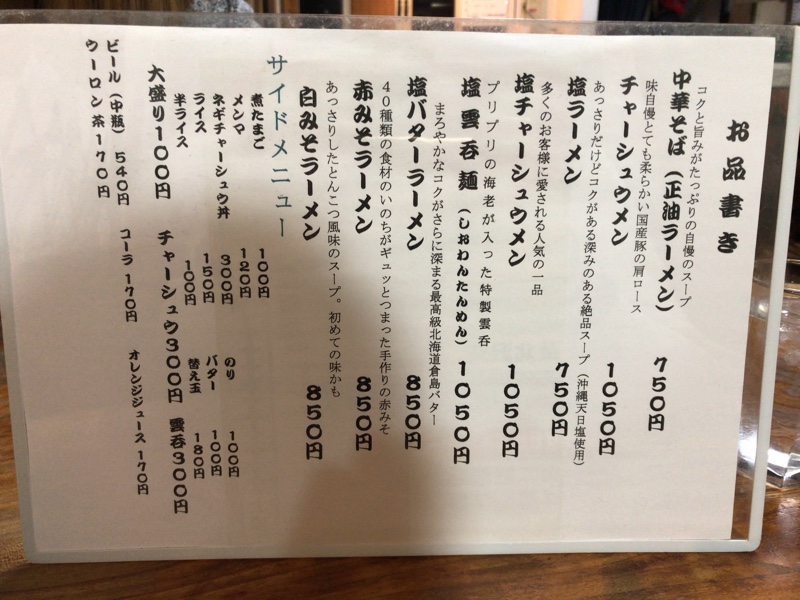 お品書き
コクと旨みがたっぷりの自慢のスープ
中華そば（正油ラーメン） 750円
味自慢とても柔らかい国産豚の肩ロース
チャーシュウメン 1050円
あっさりだけどコクがある深みのある絶品スープ（沖縄天日塩使用）
塩ラーメン 750円
多くのお客様に愛される人気の一品
塩チャーシュウメン 1050円
プリプリの海老が入った特製雲呑
塩雲呑麺（しおわんたんめん） 1050円
まろやかなコクがさらに深まる最高級北海道倉島バター
塩バターラーメン 850円
40種類の食材のいのちがギュッとつまった手作りの赤みそ
赤みそラーメン 850円
あっさりしたとんこつ風味のスープ。初めての味かも
白みそラーメン 850円
サイドメニュー
煮たまご 100円
メンマ 120円
ネギチャーシュウ丼 300円
ライス 150円
半ライス 100円
のり 100円
バター 100円
替え玉 180円
大盛り100円 チャーシュウ300円 雲呑300円
ビール（中瓶）540円 コーラ170円 オレンジジュース170円
ウーロン茶170円